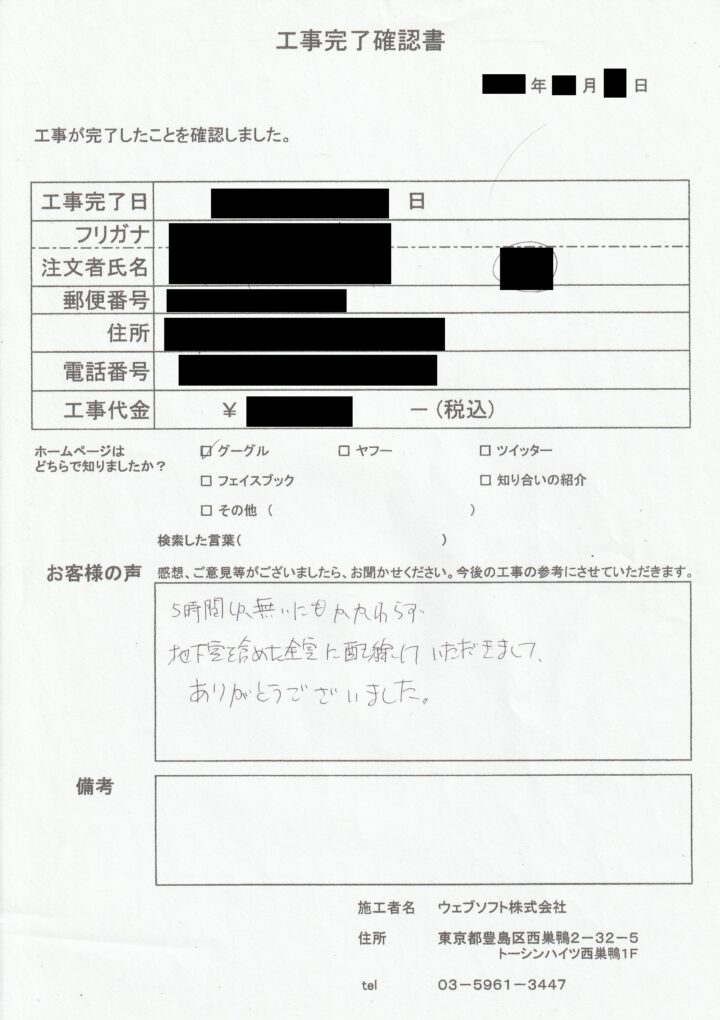 工事完了確認書
年 月 日
工事が完了したことを確認しました。
工事完了日 日
フリガナ
注文者氏名
郵便番号
住所
電話番号
工事代金 ￥ ー (税込)
ホームページは
どちらで知りましたか？
グーグル ヤフー ツイッター
フェイスブック 知り合いの紹介
その他 ( )
検索した言葉( )
お客様の声 感想、ご意見等がございましたら、お聞かせください。今後の工事の参考にさせていただきます。
5時間しか無いにもかかわらず
地下室を含めた全室に配線して いただきまして、
ありがとうございました。
備考
施工者名 ウェブソフト株式会社
住所 東京都豊島区西巣鴨2－32－5
トーシンハイツ西巣鴨1F
tel 03－5961－3447